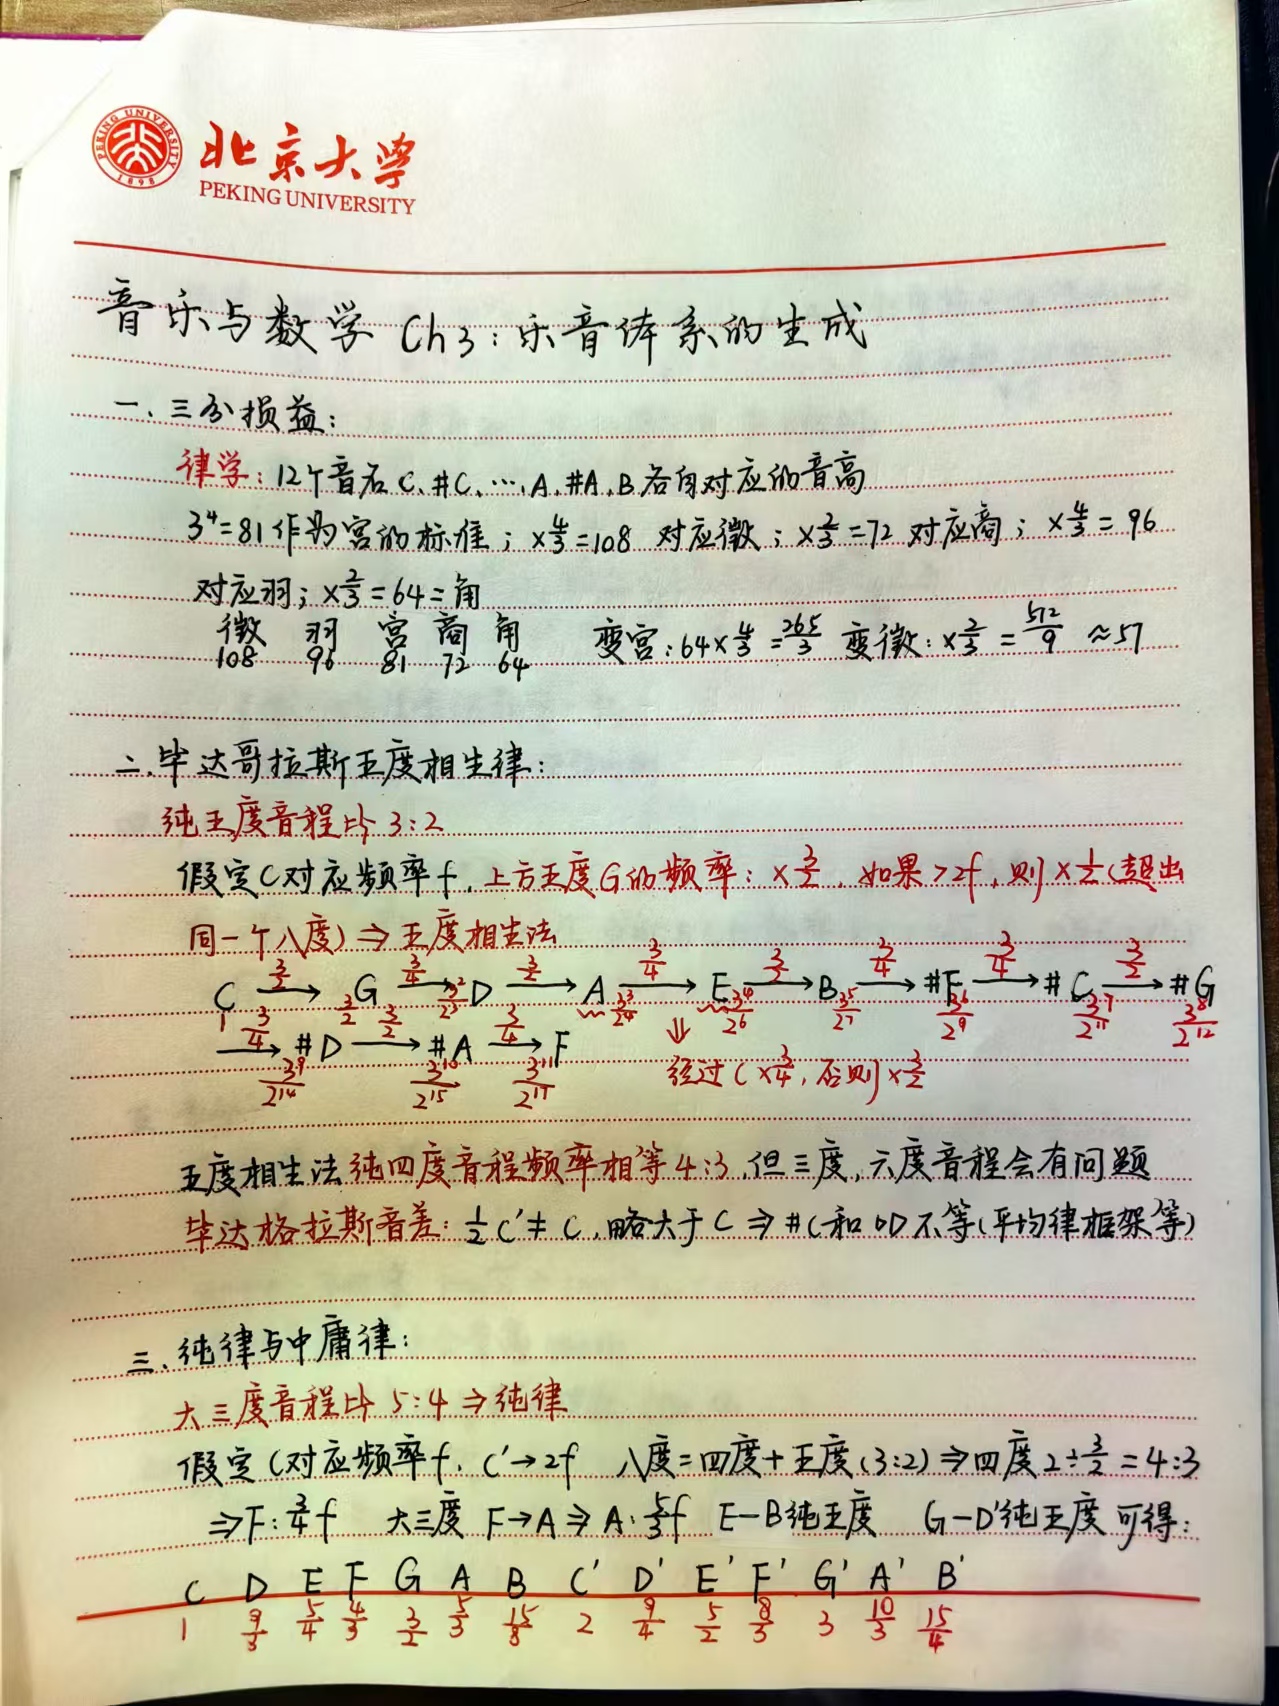 PEKING UNIVERSITY 1898
北京大学
PEKING UNIVERSITY
音乐与数学 Ch3：乐音体系的生成
一、三分损益：
律学：12个音名 C、#C、…、A、#A、B 各自对应的音高
3⁴=81作为宫的标准；×4/3=108 对应徵；×2/3=72 对应商；×4/3=96
对应羽；×2/3=64=角
徵 羽 宫 商 角 变宫：64×4/3=265/3 变徵：×2/3=512/9≈57
108 96 81 72 64
二、毕达哥拉斯五度相生律：
纯五度音程比 3:2
假定C对应频率f，上方五度G的频率：×3/2，如果>2f，则×1/2(超出
同一个八度)⇒五度相生法
C →(3/2) G →(3/4) D →(3/2) A →(3/4) E →(3/2) B →(3/4) #F →(3/4) #C →(3/2) #G
1 3/2 3²/2³ 3³/2⁴ 3⁴/2⁶ 3⁵/2⁷ 3⁶/2⁹ 3⁷/2¹¹ 3⁸/2¹²
→(3/4) #D →(3/2) #A →(3/4) F
3⁹/2¹⁴ 3¹⁰/2¹⁵ 3¹¹/2¹⁷
⇓
经过C×3/4，否则×3/2
五度相生法纯四度音程频率相等4:3，但三度，六度音程会有问题
毕达格拉斯音差：1/2C'≠C，略大于C⇒#C和bD不等(平均律框架等)
三、纯律与中庸律：
大三度音程比 5:4⇒纯律
假定C对应频率f，C'→2f 八度=四度+五度(3:2)⇒四度2÷3/2=4:3
⇒F:3/4f 大三度 F→A⇒A:5/3f E—B纯五度 G—D'纯五度 可得：
C D E F G A B C' D' E' F' G' A' B'
1 9/3 5/4 4/3 3/2 5/3 15/8 2 9/4 5/2 8/3 3 10/3 15/4